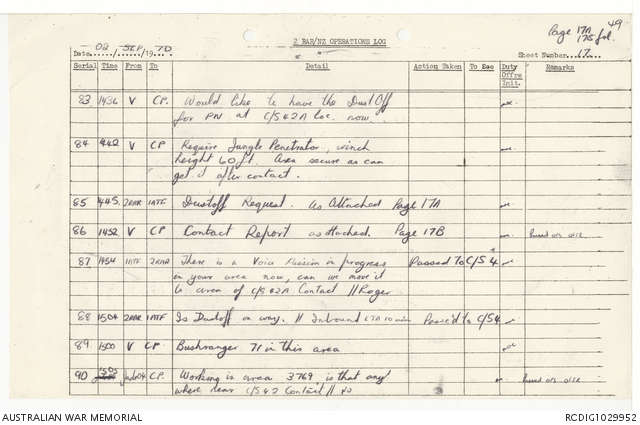 Page 17A 49
175 fol.
2 RAR/NZ OPERATIONS LOG
Date 02 / SEP /19 70
Sheet Number 17
Serial Time From To Detail Action Taken To Esc Duty Offrs Init. Remarks
83 1436 V CP. Would like to have the Dust Off
for PW at C/S 42A loc. now.
84 1442 V CP Require Jungle Penetrator, winch
height 60 ft. Area secure as can
get it after contact.
85 1445. 2RAR 1ATF Dustoff Request. As Attached Page 17A
86 1452 V CP. Contact Report as attached. Page 17B
87 1454 1ATF 2RAR There is a Voice Mission in progress Passed to C/S 4
in your area now, can we move it
to area of C/S 42A Contact // Roger
88 1504 2RAR 1ATF Is Dustoff on way. // Inbound ETA 10 min Passed to C/S 4
89 1500 V CP. Bushranger 71 in this area
90 1505 CP. Working is area 3769 is that any
where near C/S 42 Contact // No
AUSTRALIAN WAR MEMORIAL
RCDIG1029952